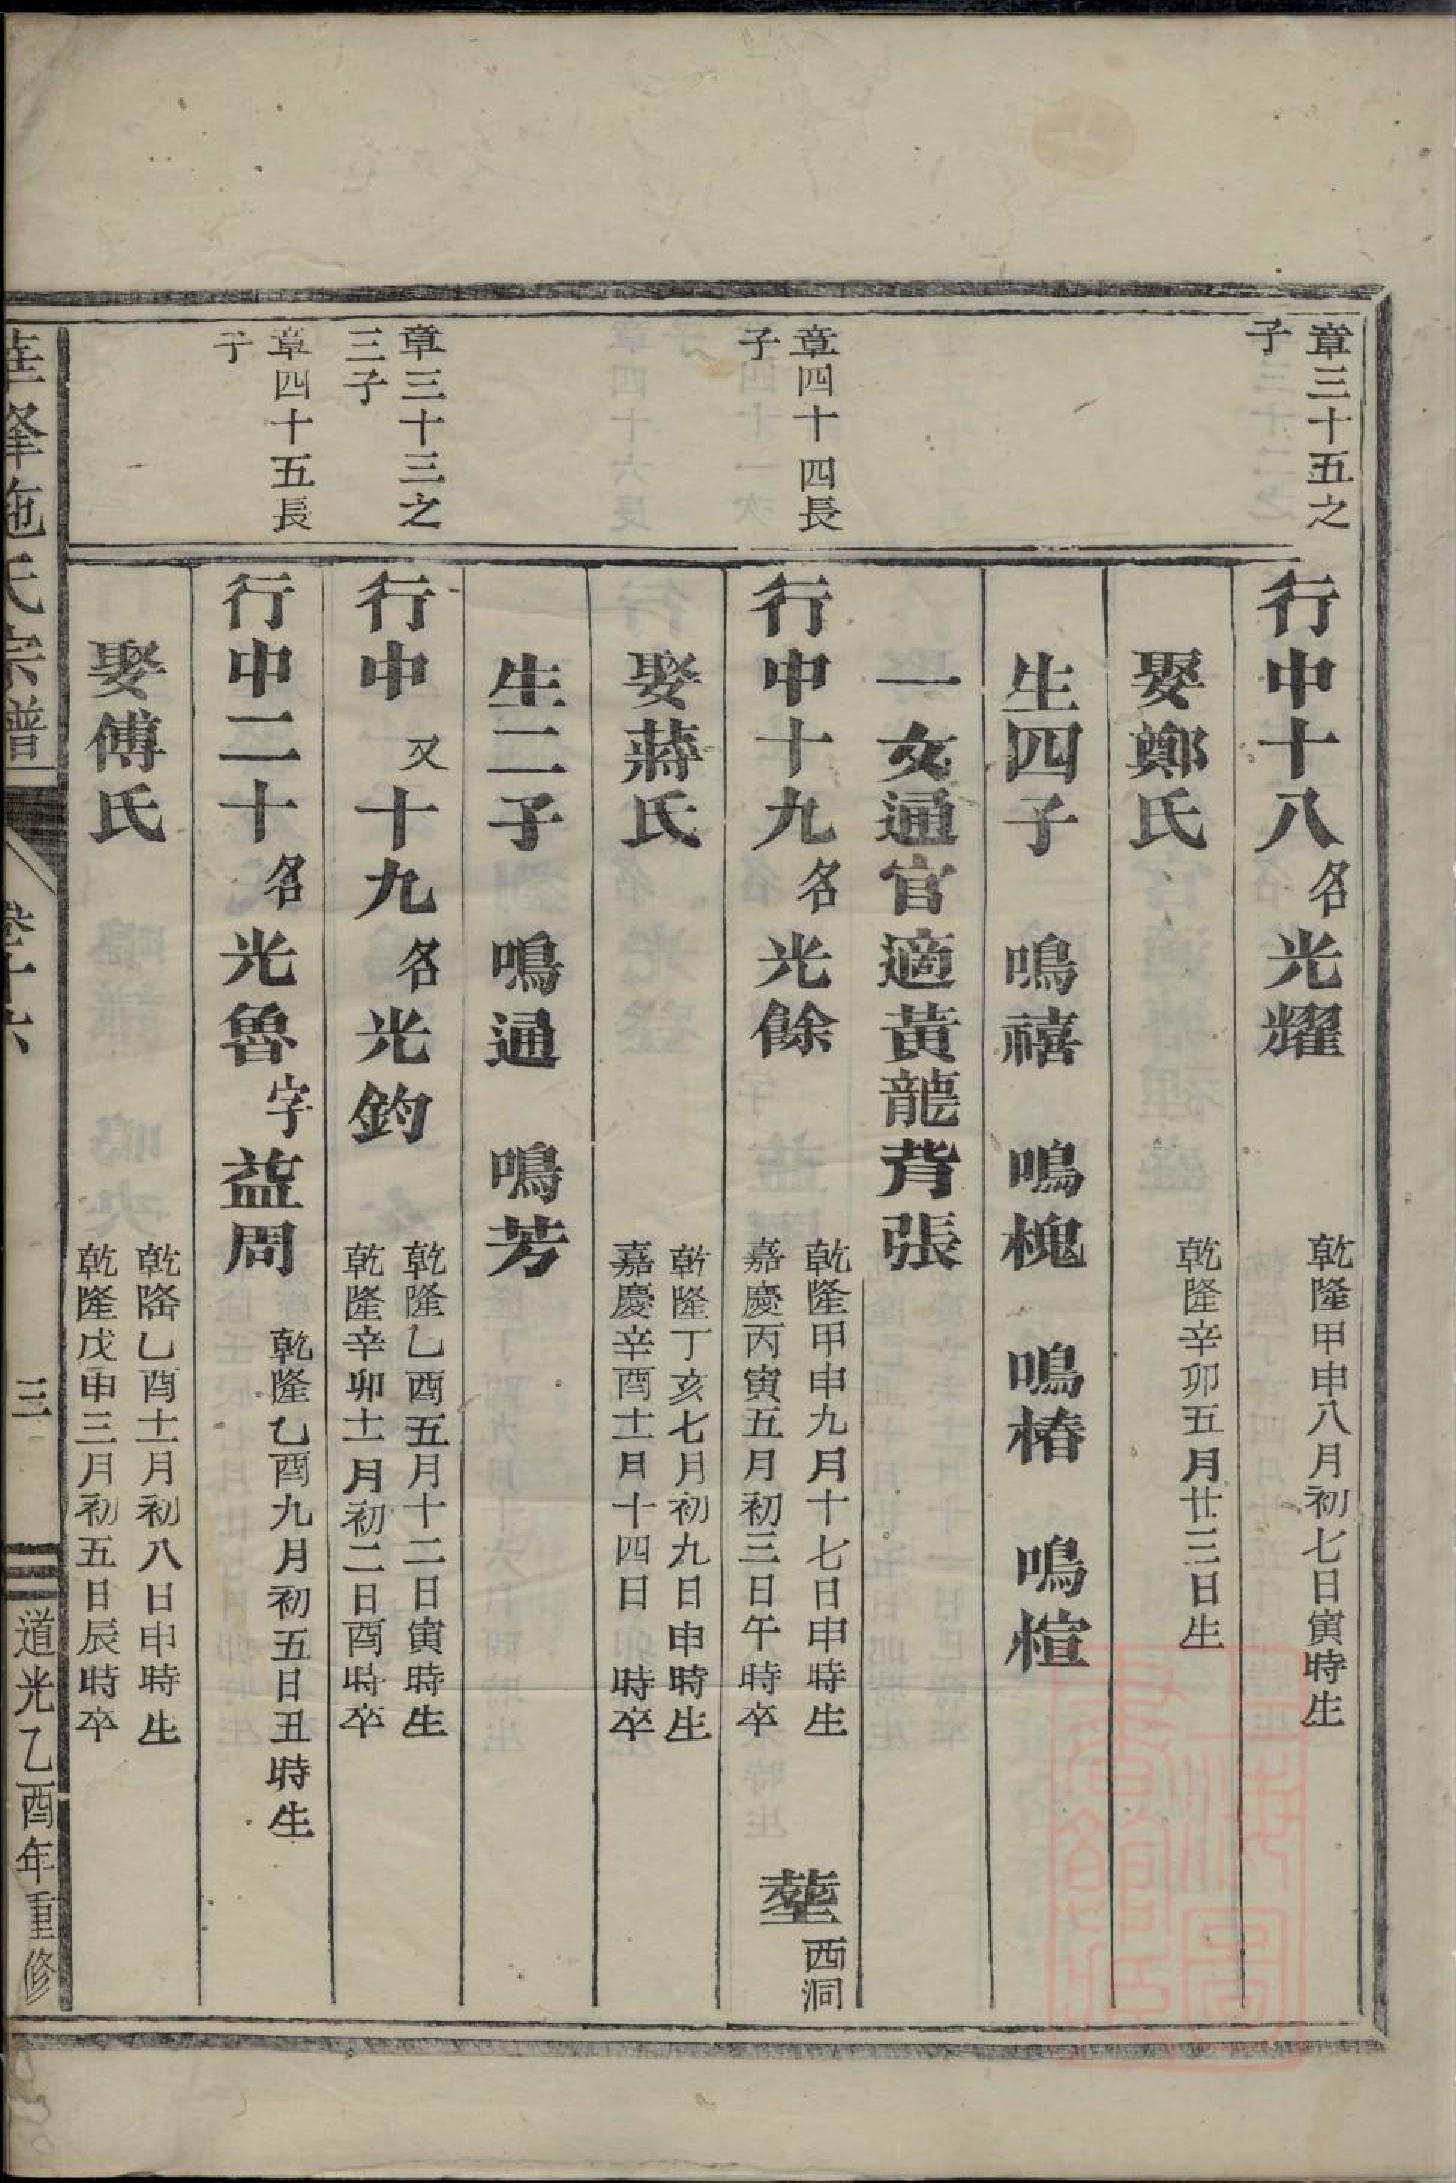 章三十五之
子
行中十八名光耀
乾隆甲申八月初七日寅時生
娶鄭氏
乾隆辛卯五月廿三日生
生四子 鳴禧 鳴槐 鳴椿 鳴楦
一女通官適黃龍背張
章四十四長
子
行中十九名光餘
乾隆甲申九月十七日申時生
嘉慶丙寅五月初三日午時卒
塟西洞
娶蔣氏
乾隆丁亥七月初九日申時生
嘉慶辛酉十一月十四日 時卒
生二子 鳴通 鳴芳
章三十三之
三子
行中又十九名光鈞
乾隆乙酉五月十二日寅時生
乾隆辛卯十一月初二日酉時卒
章四十五長
子
行中二十名光魯字益周
乾隆乙酉九月初五日丑時生
娶傅氏
乾隆乙酉十一月初八日申時生
乾隆戊申三月初五日辰時卒
華峯施氏宗譜
卷十六
三
道光乙酉年重修
上海圖書館藏